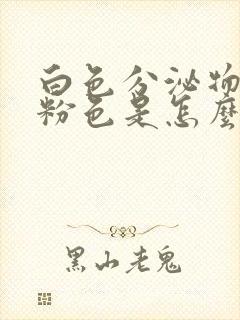 白色分泌物
粉色是怎麼
黑山老鬼